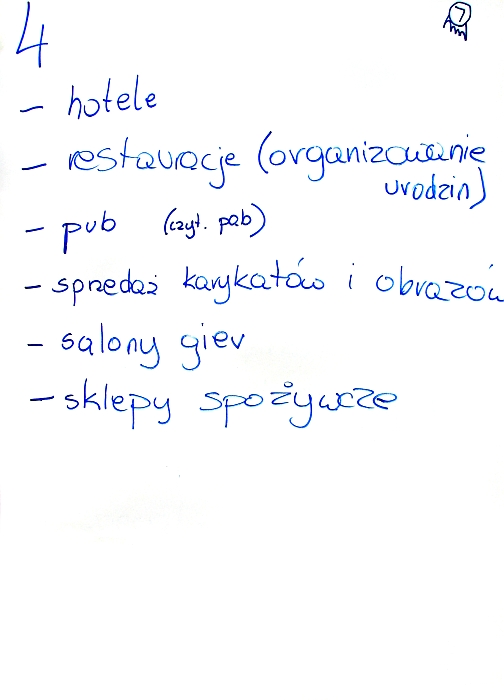 4
7
- hotele
- restauracje (organizowanie
urodzin)
- pub (czyt. pab)
- sprzedaż karykatów i obrazów
- salony gier
- sklepy spożywcze